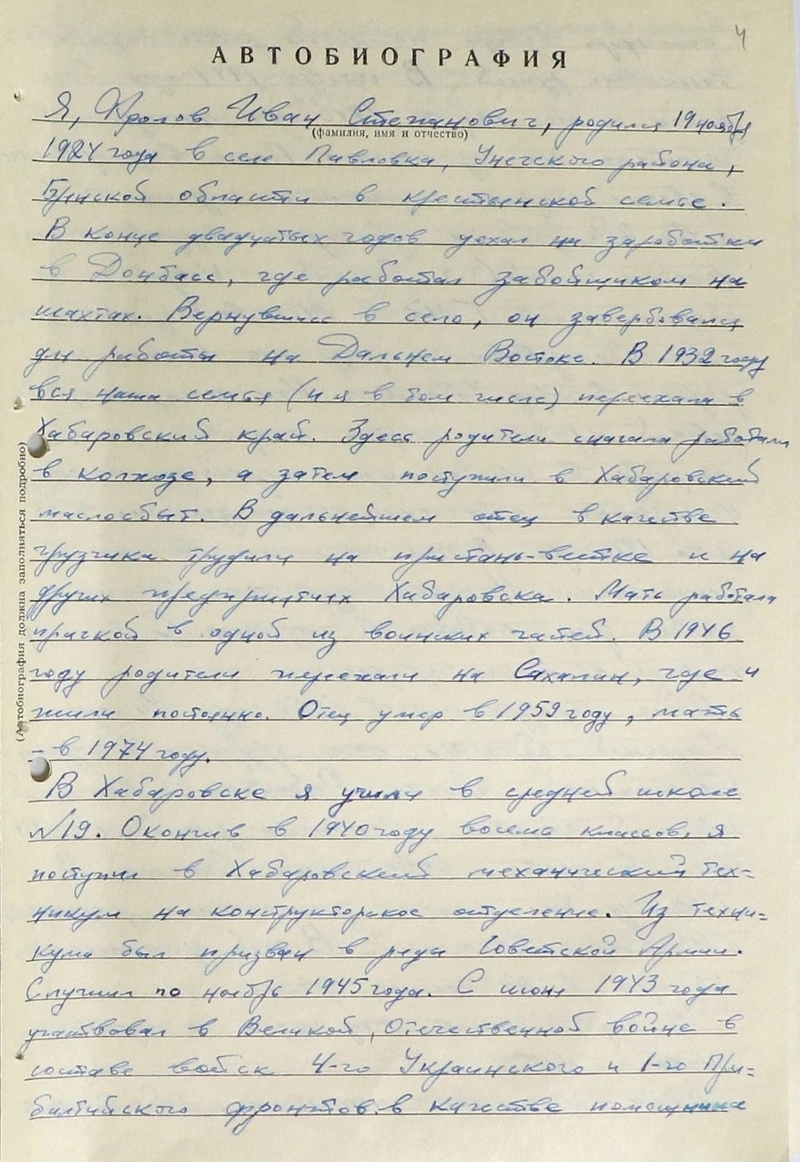 4
АВТОБИОГРАФИЯ
Я, Фролов Иван Степанович, родился 19 ноября
(фамилия, имя и отчество)
1924 года в селе Павловка, Унечского района,
Брянской области в крестьянской семье.
В конце двадцатых годов уехал на заработки
в Донбасс, где работал забойщиком на
шахтах. Вернувшись в село, он завербовался
для работы на Дальнем Востоке. В 1932 году
вся наша семья (и я в том числе) переехала в
Хабаровский край. Здесь родители сначала работали
в колхозе, а затем поступили в Хабаровский
маслосбыт. В дальнейшем отец в качестве
грузчика трудился на пристань-ветке и на
других предприятиях Хабаровска. Мать работала
прачкой в одной из воинских частей. В 1946
году родители переехали на Сахалин, где и
жили постоянно. Отец умер в 1959 году, мать
– в 1974 году.
В Хабаровске я учился в средней школе
№19. Окончив в 1940 году восемь классов, я
поступил в Хабаровский механический тех=
никум на конструкторское отделение. Из техни=
кума был призван в ряды Советской Армии.
Служил по ноябрь 1945 года. С июня 1943 года
участвовал в Великой Отечественной войне в
составе войск 4-го Украинского и 1-го При=
балтийского фронтов в качестве помощника
(Автобиография должна заполняться подробно)